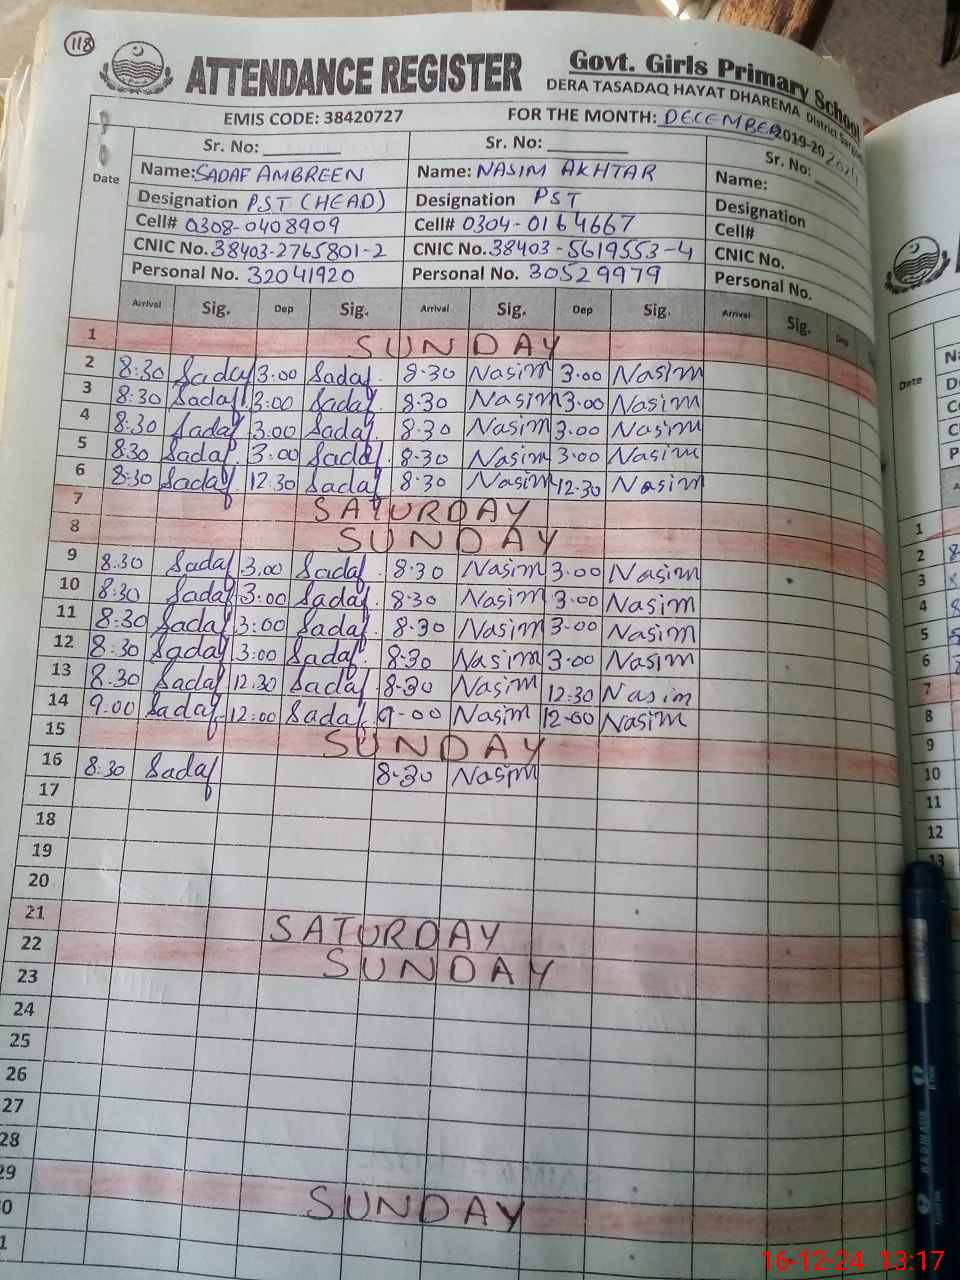 118
ATTENDANCE REGISTER
Govt. Girls Primary School
DERA TASADAQ HAYAT DHAREMA District
EMIS CODE: 38420727 FOR THE MONTH: DECEMBER 2019-20 2024
Date Sr. No: Sr. No: Sr. No:
Name: SADAF AMBREEN Name: NASIM AKHTAR Name:
Designation PST (HEAD) Designation PST Designation
Cell# 0308-0408909 Cell# 0304-0164667 Cell#
CNIC No. 38403-2765801-2 CNIC No. 38403-5619553-4 CNIC No.
Personal No. 32041920 Personal No. 30529979 Personal No.
Arrival Sig. Dep Sig. Arrival Sig. Dep Sig. Arrival Sig. Dep
1 SUNDAY
2 8:30 Sadaf 3.00 Sadaf. 8.30 Nasim 3.00 Nasim
3 8:30 Sadaf 3:00 Sadaf. 8.30 Nasim 3.00 Nasim
4 8.30 Sadaf 3:00 Sadaf. 8.30 Nasim 3.00 Nasim
5 8:30 Sadaf 3:00 Sadaf. 8.30 Nasim 3.00 Nasim
6 8:30 Sadaf 12.30 Sadaf 8.30 Nasim 12.30 Nasim
7 SATURDAY
8 SUNDAY
9 8.30 Sadaf 3.00 Sadaf. 8.30 Nasim 3.00 Nasim
10 8:30 Sadaf 3:00 Sadaf. 8.30 Nasim 3.00 Nasim
11 8:30 Sadaf 3:00 Sadaf. 8.30 Nasim 3.00 Nasim
12 8:30 Sadaf 3:00 Sadaf. 8.30 Nasim 3.00 Nasim
13 8.30 Sadaf 12.30 Sadaf 8.30 Nasim 12:30 Nasim
14 9.00 Sadaf 12:00 Sadaf 9-00 Nasim 12-00 Nasim
15 SUNDAY
16 8:30 Sadaf 8.30 Nasim
17
18
19
20
21 SATURDAY
22 SUNDAY
23
24
25
26
27
28
29 SUNDAY
0
1
Date
1
2
3
4
5
6
7
8
9
10
11
12
13
16-12-24 13:17